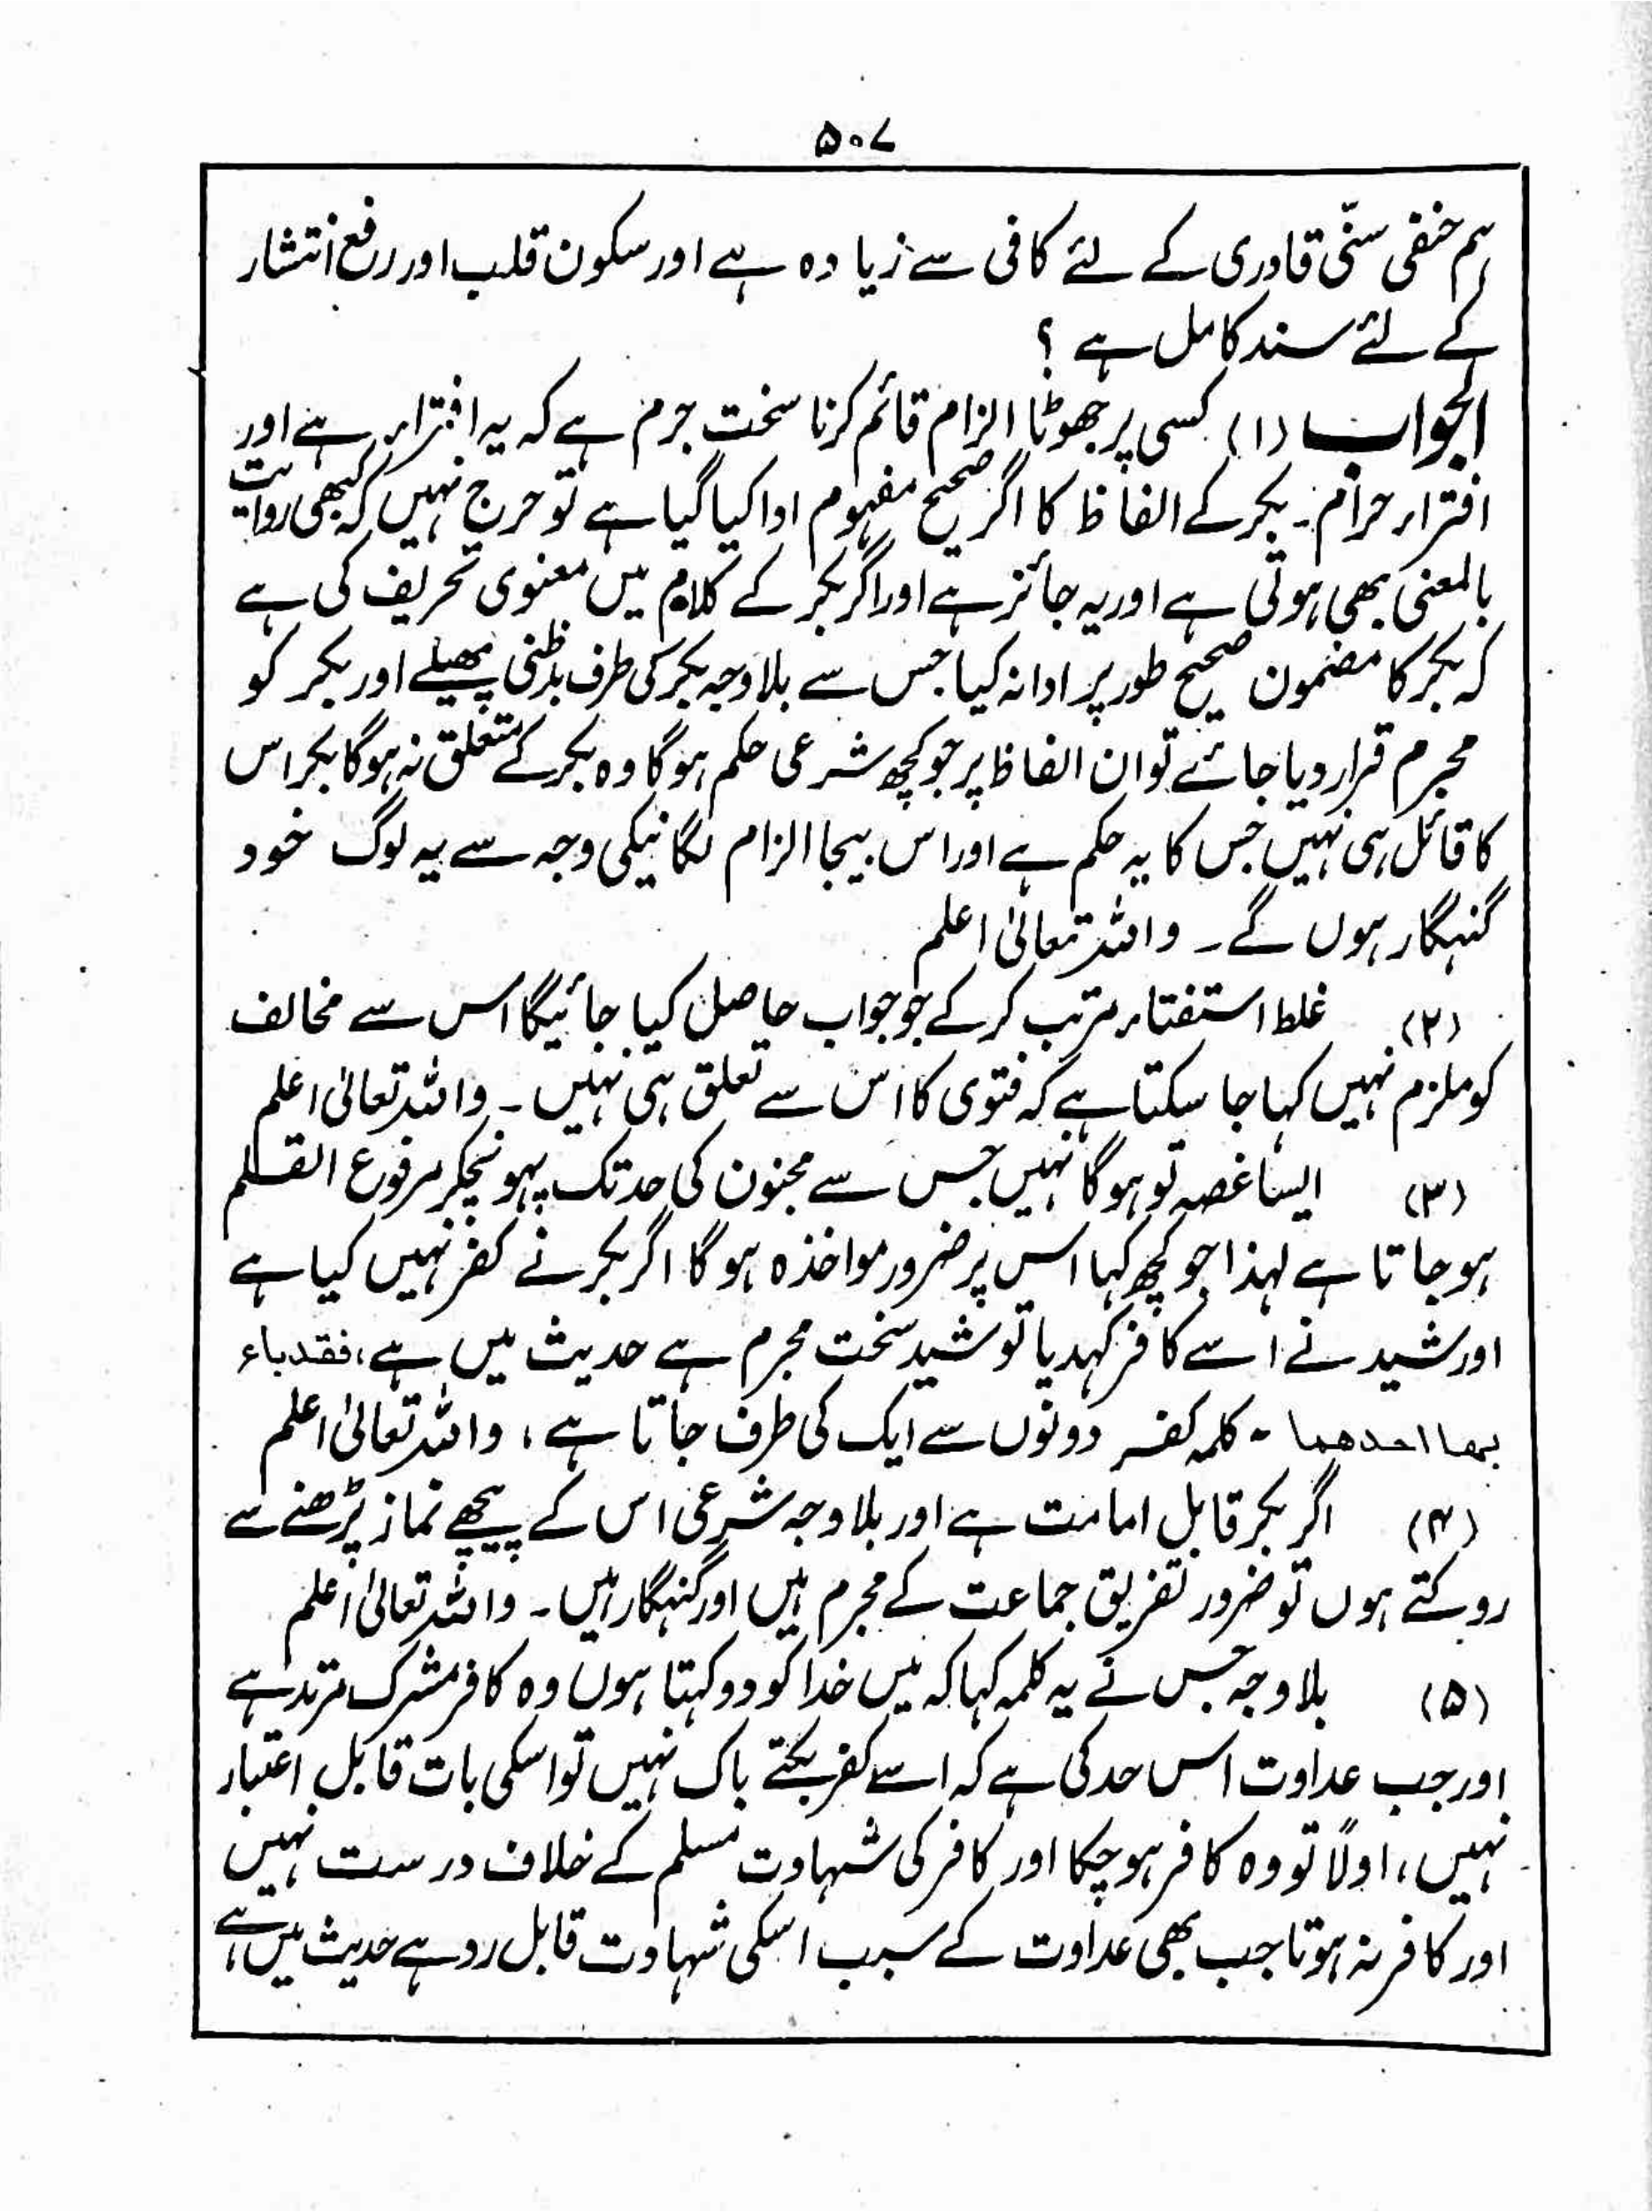 ۵۰۷
ہم حنفی سنّی قادری کے لئے کافی سے زیادہ ہے اور سکون قلب اور رفع انتشار
کے لئے سند کامل ہے ؟
الجواب (۱) کسی پر جھوٹا الزام قائم کرنا سخت جرم ہے کہ یہ افتراء ہے اور
افتراء حرام۔ بکر کے الفاظ کا اگر صحیح مفہوم ادا کیا گیا ہے تو حرج نہیں کہ کبھی روایت
بالمعنی بھی ہوتی ہے اور یہ جائز ہے اور اگر بکر کے کلام میں معنوی تحریف کی ہے
کہ بکر کا مضمون صحیح طور پر ادا نہ کیا جس سے بلا وجہ بکر کی طرف بدظنی پھیلے اور بکر کو
مجرم قرار دیا جائے تو ان الفاظ پر جو کچھ شرعی حکم ہوگا وہ بکر کے متعلق نہ ہوگا بکر اس
کا قائل ہی نہیں جس کا یہ حکم ہے اور اس بیجا الزام لگانیکی وجہ سے یہ لوگ خود
گنہگار ہوں گے۔ واللہ تعالیٰ اعلم
(۲) غلط استفتاء مرتب کر کے جو جواب حاصل کیا جائیگا اس سے مخالف
کو ملزم نہیں کہا جا سکتا ہے کہ فتوی کا اس سے تعلق ہی نہیں۔ واللہ تعالیٰ اعلم
(۳) ایسا غصہ تو ہوگا نہیں جس سے مجنون کی حد تک پہونچکر مرفوع القلم
ہو جاتا ہے لہذا جو کچھ کہا اس پر ضرور مواخذہ ہو گا اگر بکر نے کفر نہیں کیا ہے
اور شید نے اسے کافر کہدیا تو شید سخت مجرم ہے حدیث میں ہے، فقد باء
بھا احدھما - کلمہ کفر دونوں سے ایک کی طرف جاتا ہے، واللہ تعالیٰ اعلم
(۴) اگر بکر قابل امامت ہے اور بلا وجہ شرعی اس کے پیچھے نماز پڑھنے سے
روکتے ہوں تو ضرور تفریق جماعت کے مجرم ہیں اور گنہگار ہیں۔ واللہ تعالیٰ اعلم
(۵) بلا وجہ جس نے یہ کلمہ کہا کہ میں خدا کو دو کہتا ہوں وہ کافر مشرک مرتد ہے
اور جب عداوت اس حد کی ہے کہ اسے کفر بکتے باک نہیں تو اسکی بات قابل اعتبار
نہیں، اولًا تو وہ کافر ہو چکا اور کافر کی شہادت مسلم کے خلاف درست نہیں
اور کافر نہ ہوتا جب بھی عداوت کے سبب اسکی شہادت قابل رد ہے حدیث میں ہے،